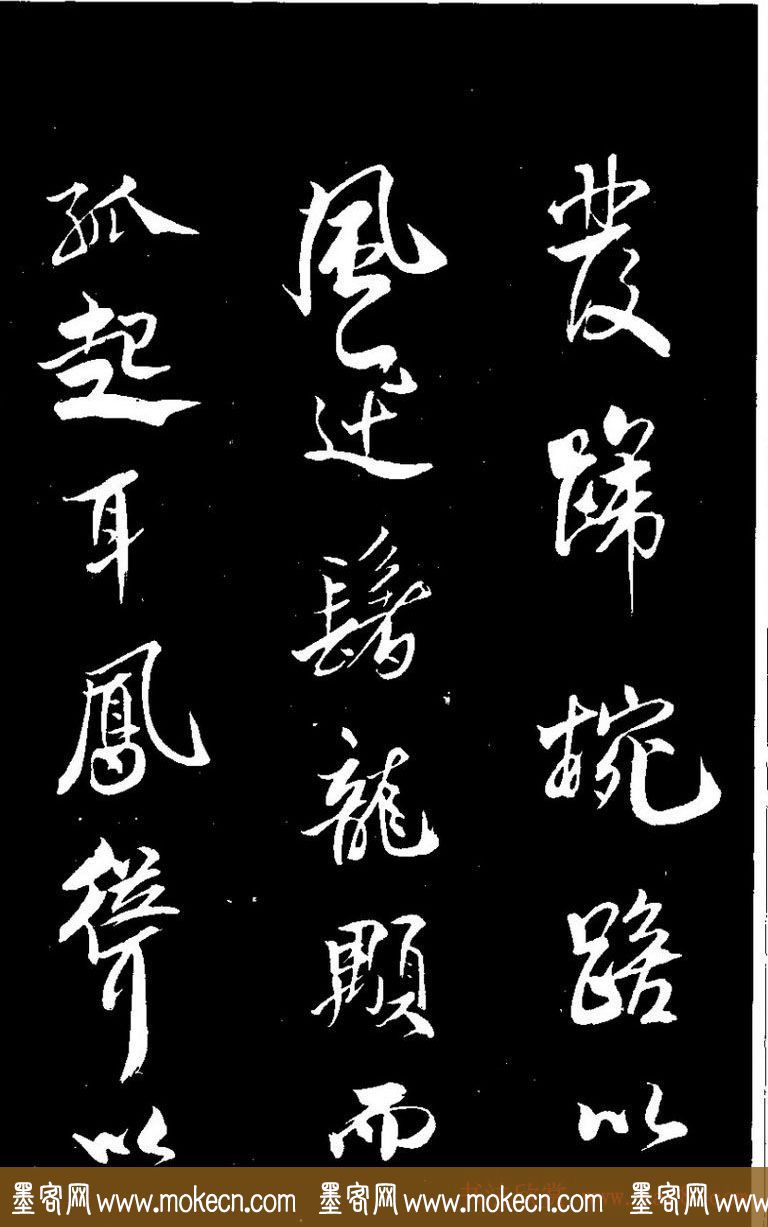 發蹄椀踣以
風迅鬐龍顒而
孤起耳鳳聳以
墨客网www.mokecn.com 墨客网www.mokecn.com 墨客网www.mo